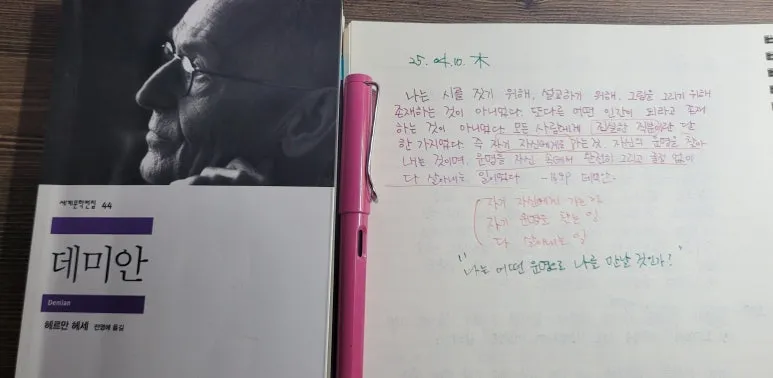 세계문학전집 44
데미안
Demian
헤르만 헤세 전영애 옮김
25. 04. 10. 木
나는 시를 짓기 위해, 설교하기 위해, 그림을 그리기 위해
존재하는 것이 아니었다. 또다른 어떤 인간이 되라고 존재
하는 것이 아니었다. 모든 사람에게 진실한 직분이란 단
한 가지였다. 즉 자기 자신에게로 가는 것. 자신의 운명을 찾아
내는 것이며, 운명을 자신 속에서 완전히 그리고 굴절 없이
다 살아내는 일이었다 -149P 데미안-
자기 자신에게 가는
자기 운명을 찾는 일
다 살아내는 일
"나는 어떤 운명으로 나를 만날 것인가!"